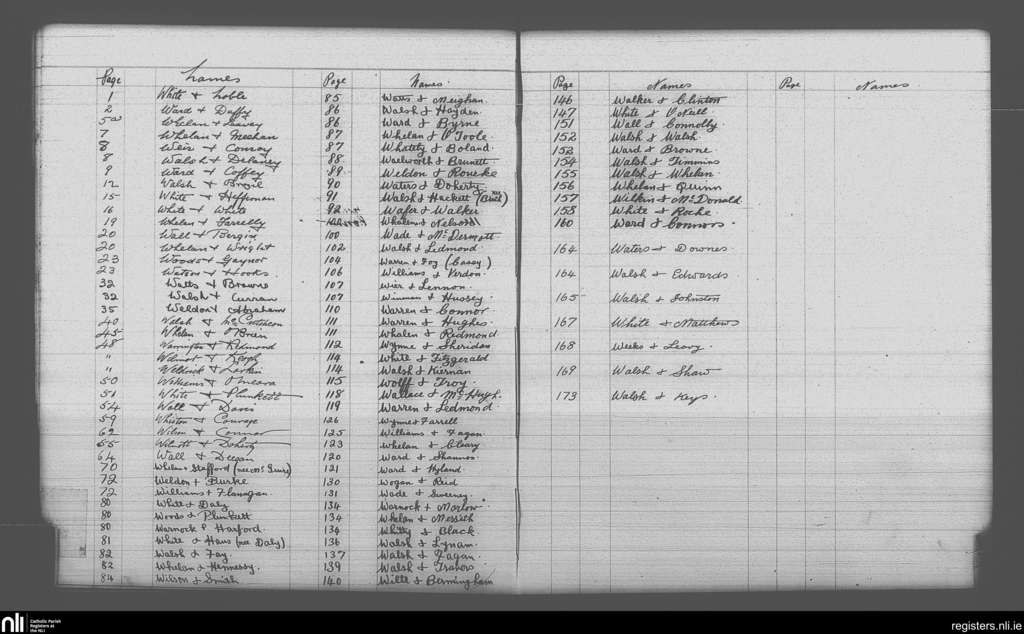 Page Names
1 White & Noble
2 Ward & Duffy
5a Whelan & Leavy
7 Whelan & Meehan
8 Weir & Conroy
8 Walsh & Delaney
9 Ward & Coffey
12 Walsh & Brazil
15 White & Heffernan
16 White & White
19 Whelan & Farrelly
20 Wall & Bergin
20 Whelan & Wright
23 Woods & Gaynor
23 Watson & Hooks
32 Watts & Browne
32 Walsh & Curran
35 Weldon & Abraham
40 Walsh & McCutcheon
45 Whelan & O'Brien
48 Warrington & Redmond
" Wilmot & Keogh
" Weldrick & Larkin
50 Williams & O'Meara
51 White & Plunkett
54 Wall & Davis
59 Whiston & Courage
62 Wilson & Connor
55 Wilmott & Doherty
64 Wall & Deegan
70 Whelan & Stafford (nee
72 Weldon & Burke
72 Williams & Flanagan
80 White & Daly
80 Woods & Plunkett
80 Warnock & Harford
81 White & Haus (nee Daly)
82 Walsh & Fay
82 Whelan & Hennessy
84 Wilson & Smith
Page Names
85 Watts & Meighan
86 Walsh & Hayden
86 Ward & Byrne
87 Whelan & O'Toole
87 Whately & Boland
88 Waelworth & Brunett
89 Weldon & Rourke
90 Waters & Doherty
91 Walsh & Hackett (nee Butt)
92 Wafer & Walker
Whelan & Nelson
100 Wade & McDermott
102 Walsh & Ledmond
104 Warren & Foy (Casey)
106 Williams & Verdon
107 Wier & Lennon
107 Winman & Hussey
110 Warren & Connor
111 Warren & Hughes
111 Whalen & Redmond
112 Wynne & Sheridan
114 White & Fitzgerald
114 Walsh & Kiernan
115 Wolff & Troy
118 Wallace & McHugh
119 Warren & Ledmond
126 Wynne & Farrell
125 Williams & Fagan
123 Whelan & Cleary
120 Ward & Shannon
121 Ward & Hyland
130 Wogan & Reid
131 Wade & Sweeney
134 Warnock & Morlow
134 Whelan & Messith
134 Whitty & Black
136 Walsh & Lynam
137 Walsh & Fagan
139 Walsh & Travers
140 Wilte & Bermingham
Page Names
146 Walker & Clinton
147 White & O'Neill
151 Wall & Connolly
152 Walsh & Walsh
152 Ward & Browne
154 Walsh & Timmins
155 Walsh & Whelan
156 Whelan & Quinn
157 Wilkin & McDonald
158 White & Roche
160 Ward & Connors
164 Waters & Downes
164 Walsh & Edwards
165 Walsh & Johnston
167 White & Matthews
168 Weeks & Leavy
169 Walsh & Shaw
173 Walsh & Keys
Page Names
nli Catholic Parish
Registers at
the NLI
registers.nli.ie